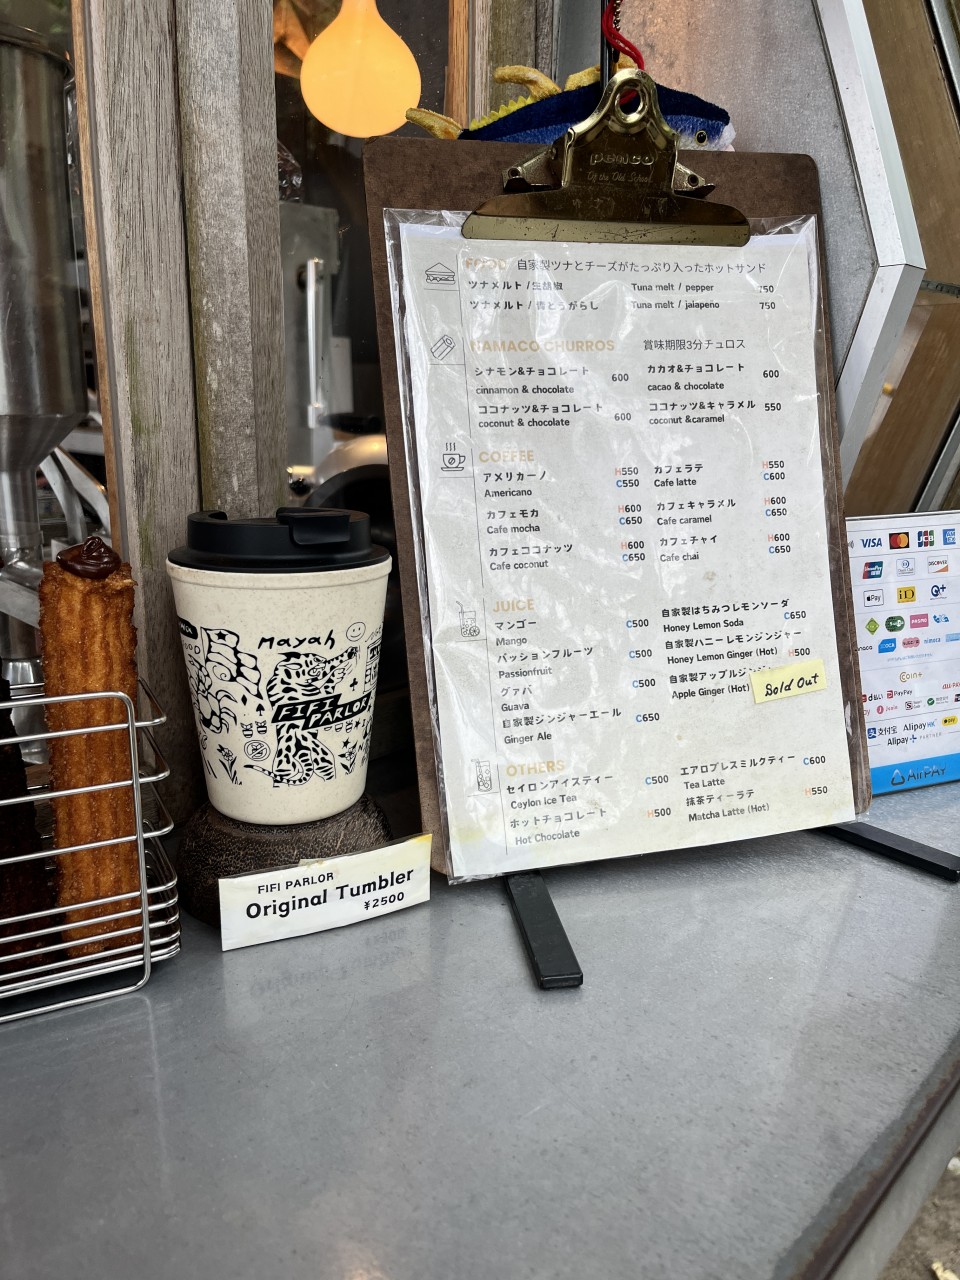 penco
Of the Old School
FOOD 自家製ツナとチーズがたっぷり入ったホットサンド
ツナメルト / 黒胡椒 Tuna melt / pepper 750
ツナメルト / 青とうがらし Tuna melt / jalapeño 750
HAMACO CHURROS 賞味期限3分チュロス
シナモン&チョコレート 600 カカオ&チョコレート 600
cinnamon & chocolate cacao & chocolate
ココナッツ&チョコレート 600 ココナッツ&キャラメル 550
coconut & chocolate coconut &caramel
COFFEE
アメリカーノ H550 カフェラテ H550
Americano C550 Cafe latte C600
カフェモカ H600 カフェキャラメル H600
Cafe mocha C650 Cafe caramel C650
カフェココナッツ H600 カフェチャイ H600
Cafe coconut C650 Cafe chai C650
JUICE
マンゴー C500 自家製はちみつレモンソーダ C650
Mango Honey Lemon Soda
パッションフルーツ C500 自家製ハニーレモンジンジャー
Passionfruit Honey Lemon Ginger (Hot) H500
グァバ C500 自家製アップルジン
Guava Apple Ginger (Hot)
Sold Out
自家製ジンジャーエール C650
Ginger Ale
OTHERS
セイロンアイスティー C500 エアロプレスミルクティー C600
Ceylon Ice Tea Tea Latte
ホットチョコレート H500 抹茶ティーラテ H550
Hot Chocolate Matcha Latte (Hot)
mayah
FIFI
PARLOR
FIFI PARLOR
Original Tumbler
¥2500
VISA JCB
UnionPay DISCOVER
Pay iD
nanaco
COIN+
d払い PayPay
支付宝 Alipay
Alipay+ PARTNER
AirPAY